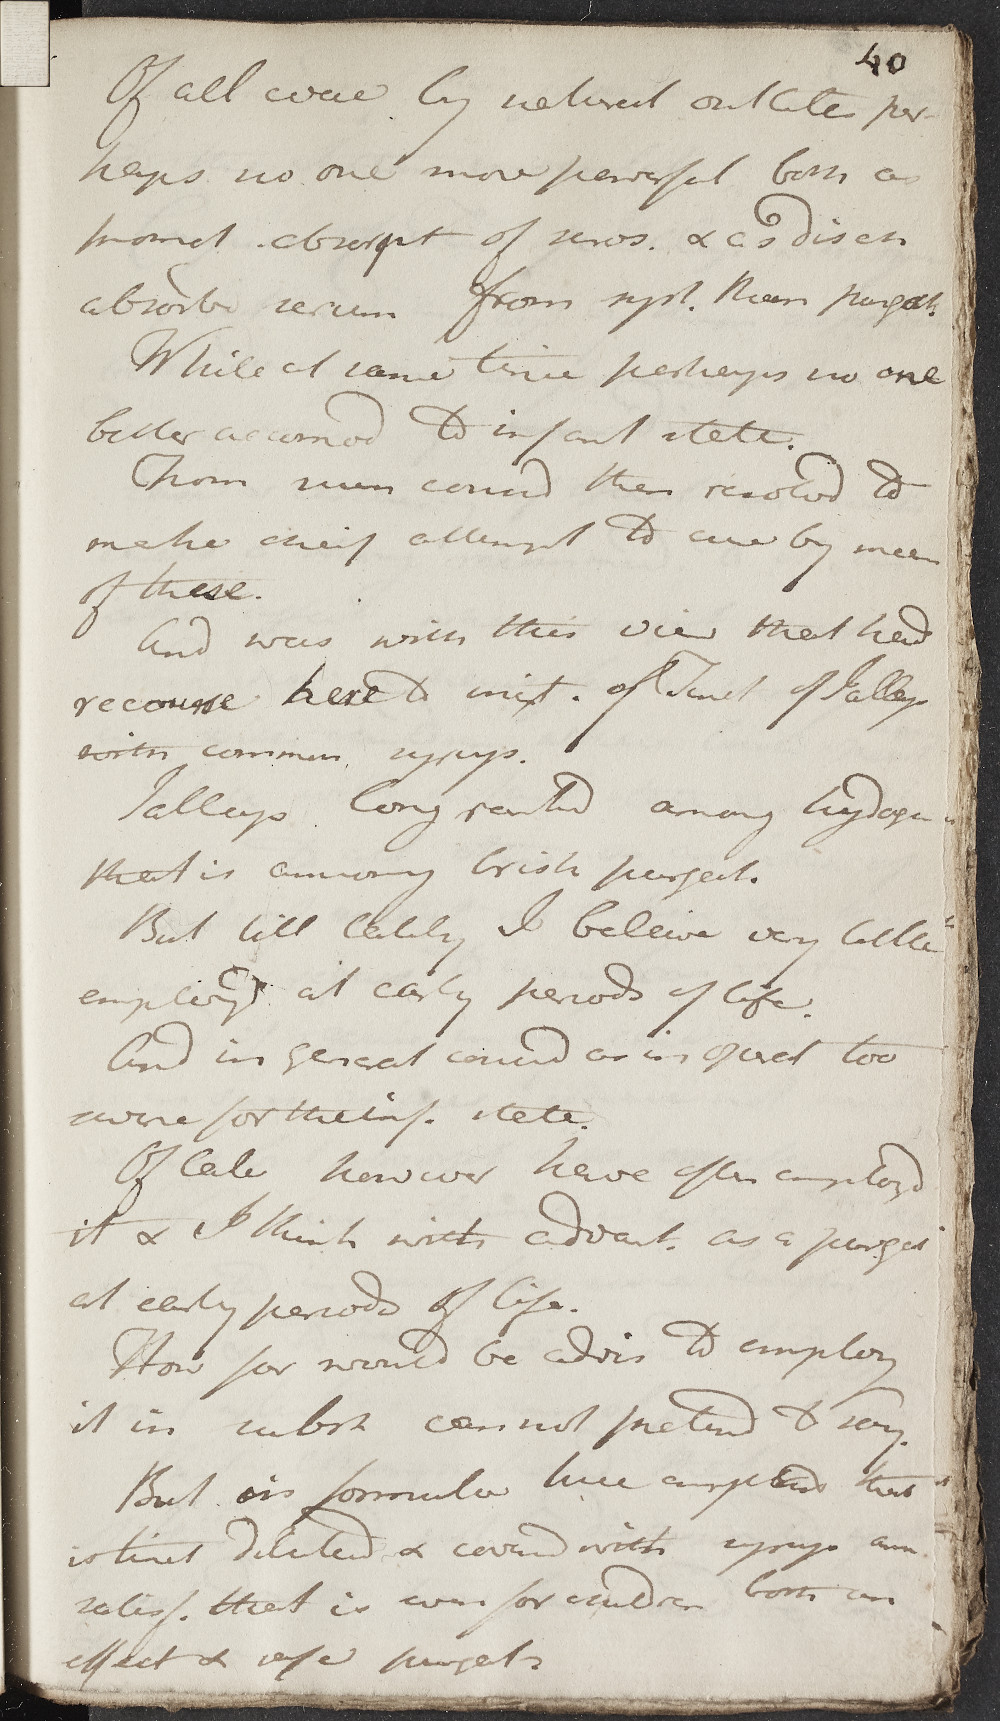 40
Of all evac by natural outlets per-
haps no one more powerful both as
promot. absorpt of seros. & as disch
absorbd serum from syst. than purgat.
While at same time perhaps no one
better accomod to infant state.
From seun consid then resolvd to
make cheif attempt to cure by mean
of these.
And was with this view that had
recourse here to mixt. of Tinct of Jallap
with common syrup.
Jallap long rankd among hydagog
that is among brisk purgat.
But till lately I beleive very little
employd at early periods of life.
And in general consid as in operat too
severe for the inf. state.
Of late however have often employd
it & I think with advant. as a purgat
at early periods of life.
How far would be advis to employ
it in subst cannot pretend to say.
But in formula here employd that
is tinct diluted & coverd with syrup am
satisf. that is even for children both an
effect & safe purgat